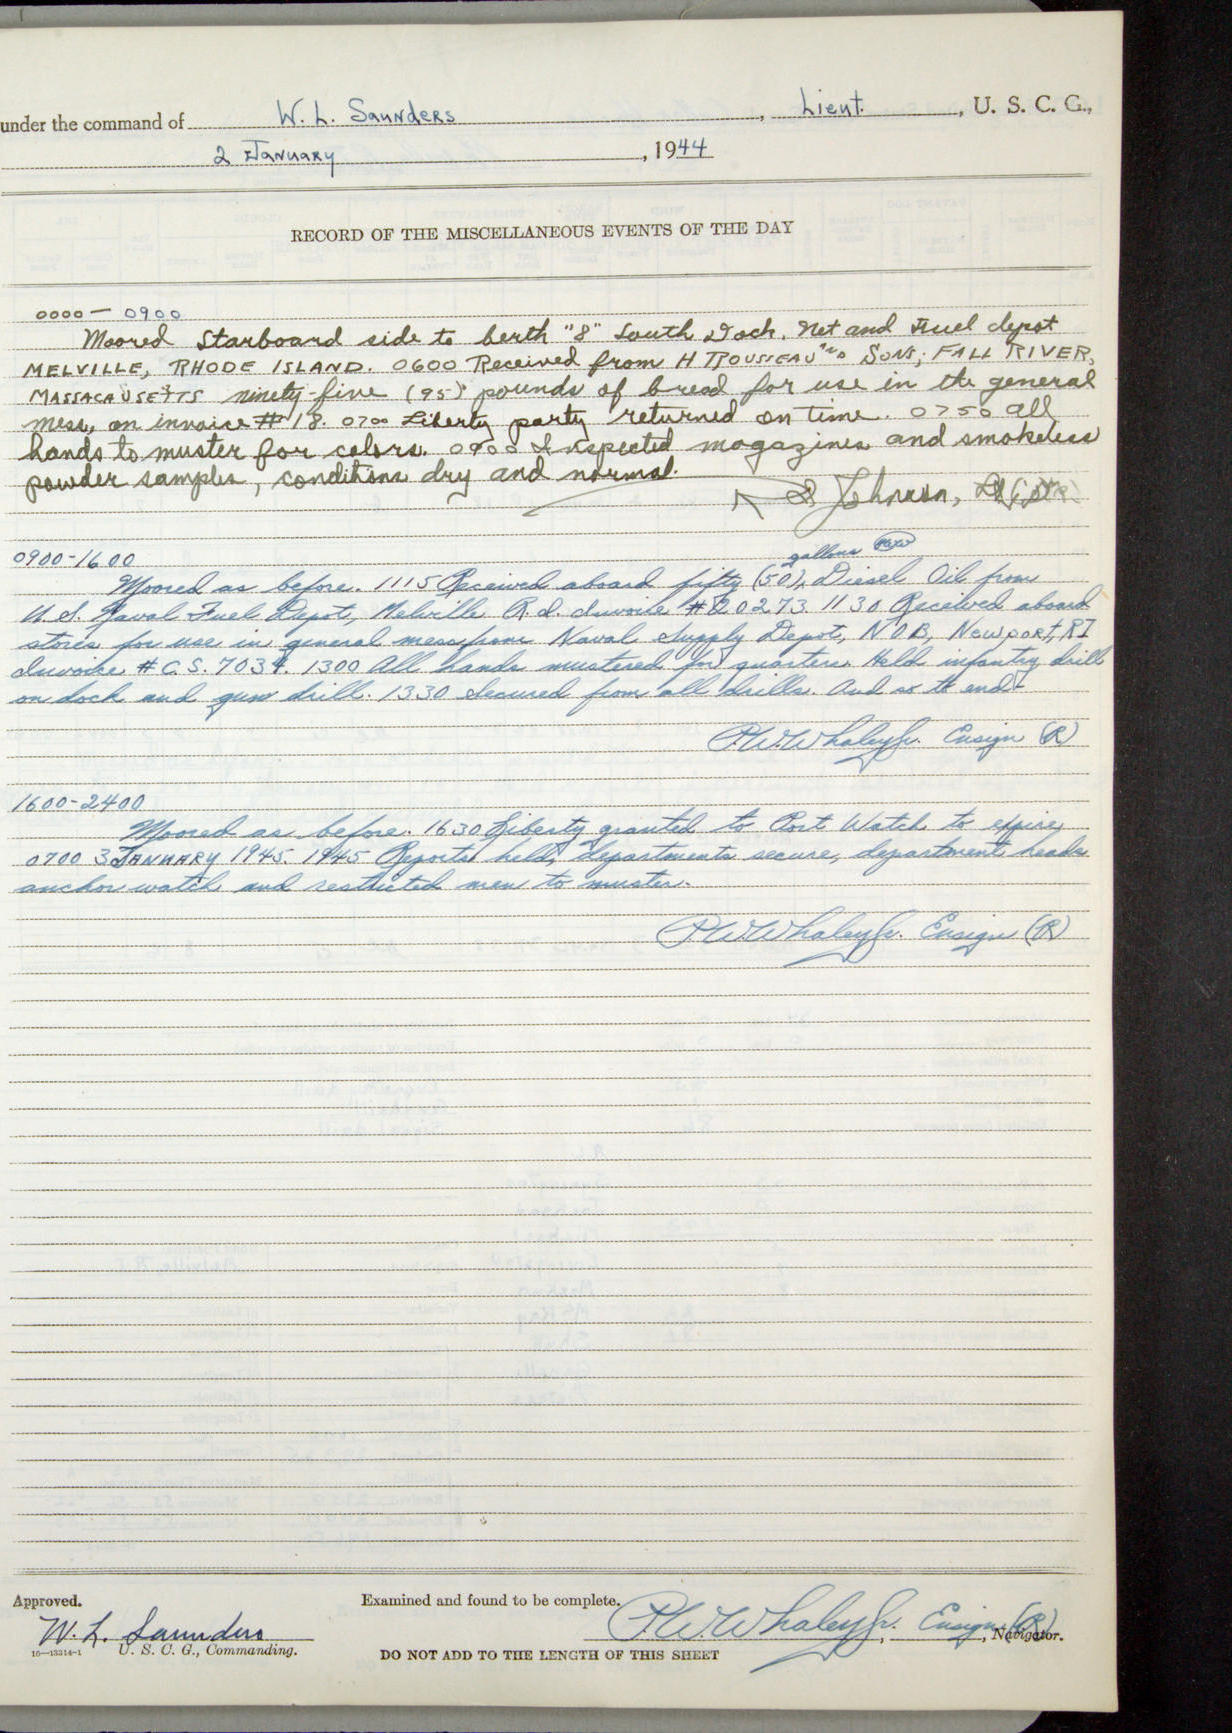 under the command of W. L. Saunders, Lieut., U. S. C. G.,
2 January, 1944
RECORD OF THE MISCELLANEOUS EVENTS OF THE DAY
0000 — 0900
Moored Starboard side to berth "8" South Dock. Net and Fuel depot
MELVILLE, RHODE ISLAND. 0600 Received from H TROUSSEAU AND SONS, FALL RIVER,
MASSACAUSETTS ninety-five (95) pounds of bread for use in the general
mess, on invoice # 18. 0700 Liberty party returned on time. 0750 all
hands to muster for colors. 0900 Inspected magazines and smokeless
powder samples, conditions dry and normal.
Johnson,
0900-1600
gallons
Moored as before. 1115 Received aboard fifty (50), Diesel Oil from
U.S. Naval Fuel Depot, Melville R.I. Invoice #20273 1130 Received aboard
stores for use in general mess from Naval Supply Depot, NOB, Newport, RI
Invoice # C.S. 7034. 1300 All hands mustered for quarters. Held infantry drill
on dock and gun drill. 1330 Secured from all drills. And so to end-
P.W. Whaley Jr. Ensign (R)
1600-2400
Moored as before. 1630 Liberty granted to Port Watch to expire
0700 3 JANUARY 1945. 1945 Reports held, departments secure, department heads
anchor watch and restricted men to muster.
P.W. Whaley Jr. Ensign (R)
Approved. Examined and found to be complete.
W. L. Saunders P.W. Whaley Jr., Ensign (R), Navigator.
16—13314-1 U. S. C. G., Commanding.
DO NOT ADD TO THE LENGTH OF THIS SHEET